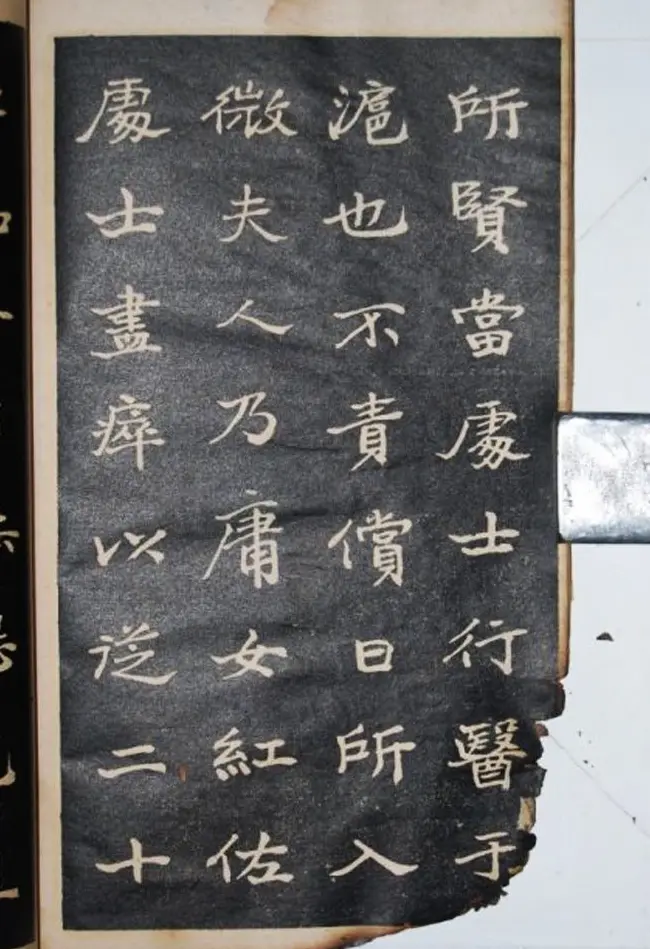 所賢當處士行醫于
滬也不責償日所入
微夫人乃庸女紅佐
處士盡瘁以從二十